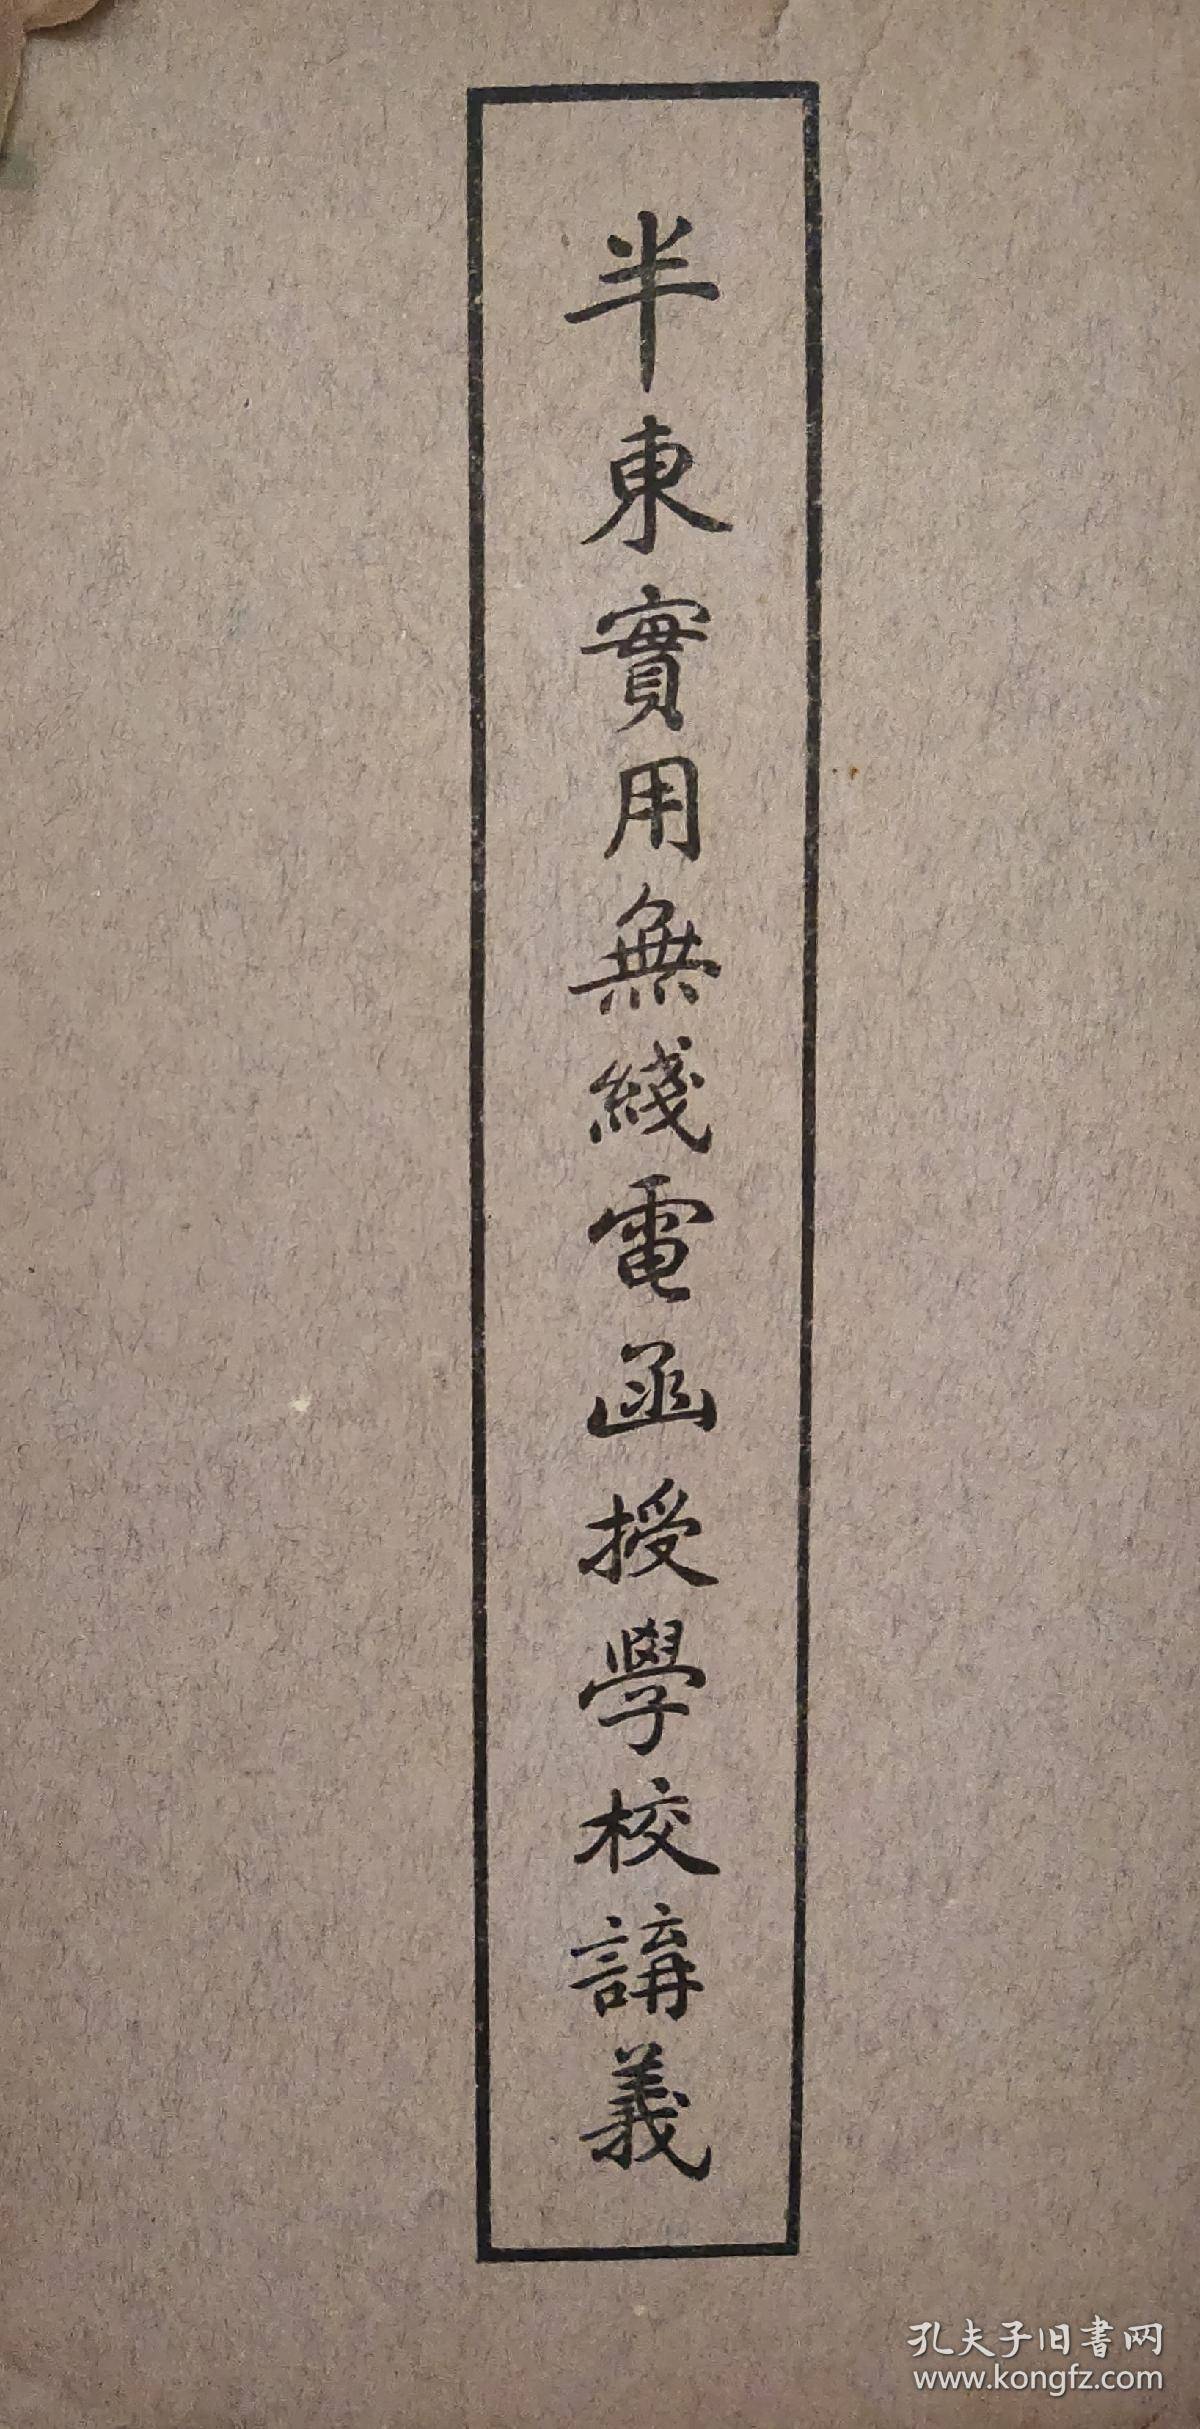 半東實用無綫電函授學校講義
孔夫子旧書网
www.kongfz.com